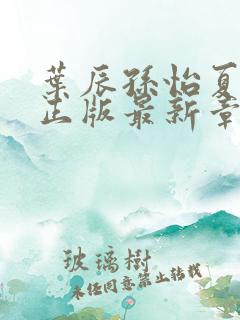 葉辰孫怡夏
正版最新章
玻璃樹
未经同意禁止转载